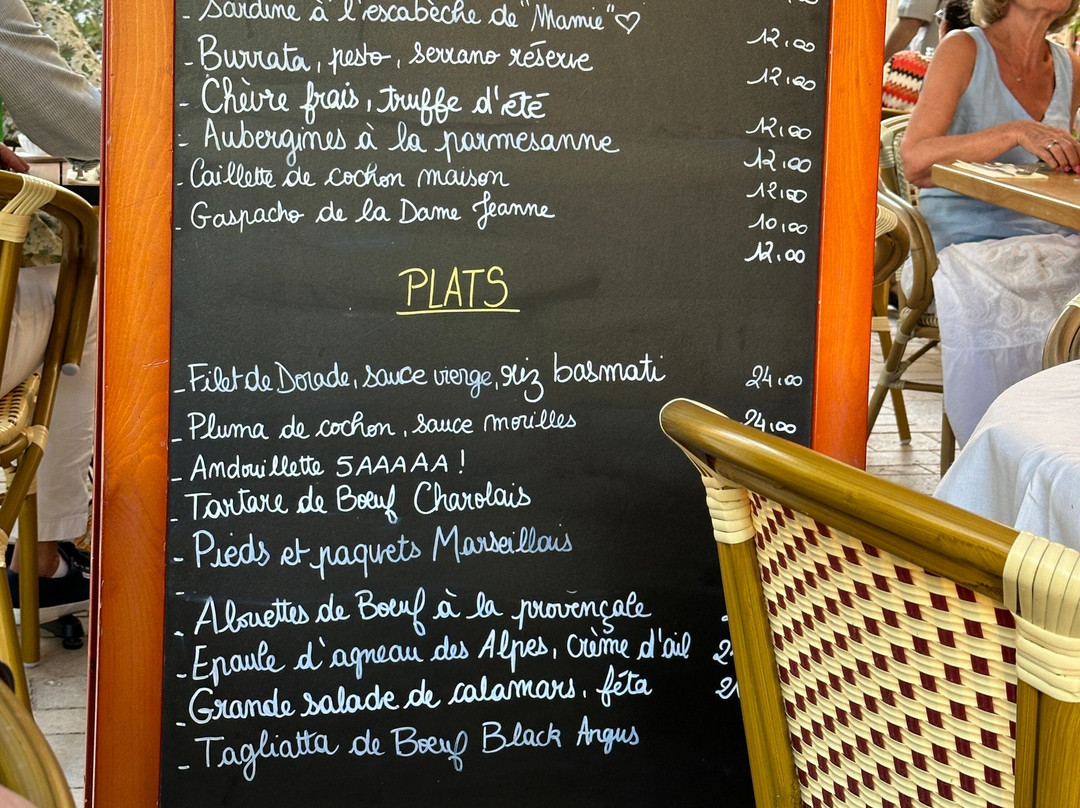 - Sardine à l'escabèche de "Mamie" ♡
- Burrata, pesto, serrano réserve 12,00
- Chèvre frais, truffe d'été 12,00
- Aubergines à la parmesanne 12,00
- Caillette de cochon maison 12,00
12,00
- Gaspacho de la Dame Jeanne 10,00
12,00
PLATS
- Filet de Dorade, sauce vierge, riz basmati 24,00
- Pluma de cochon, sauce morilles 24,00
- Andouillette 5AAAAA !
- Tartare de Bœuf Charolais
- Pieds et paquets Marseillais
- Alouettes de Bœuf à la provençale
- Epaule d'agneau des Alpes, crème d'ail 2
- Grande salade de calamars, féta 2
- Tagliatta de Bœuf Black Angus